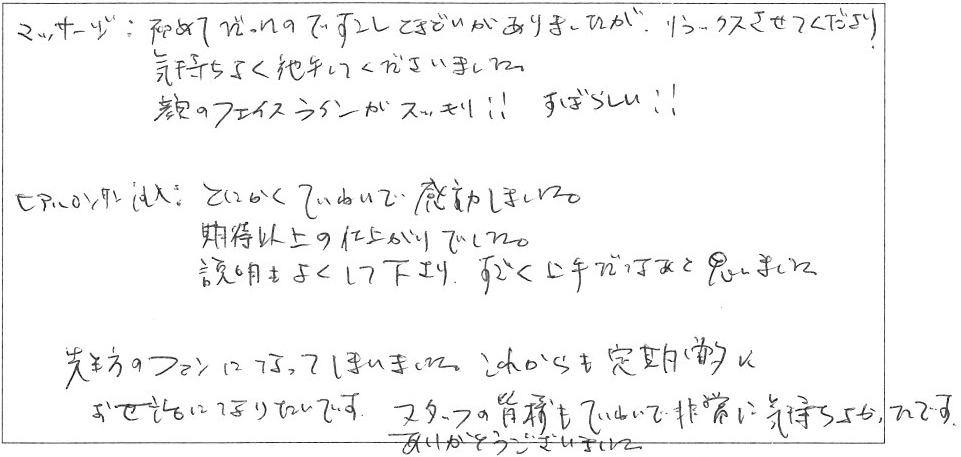 マッサージ：初めてだったので少しとまどいがありましたが、リラックスさせてくださり
気持ちよく施術してくださいました。
顔のフェイスラインがスッキリ!! すばらしい!!
ヒアルロン酸注入：とにかくていねいで感動しました。
期待以上の仕上がりでした。
説明もよくして下さり、すごく上手だなあと思いました
先生方のファンになってしまいました。これからも定期的に
お世話になりたいです。スタッフの皆様もていねいで非常に気持ちよかったです。
ありがとうございました